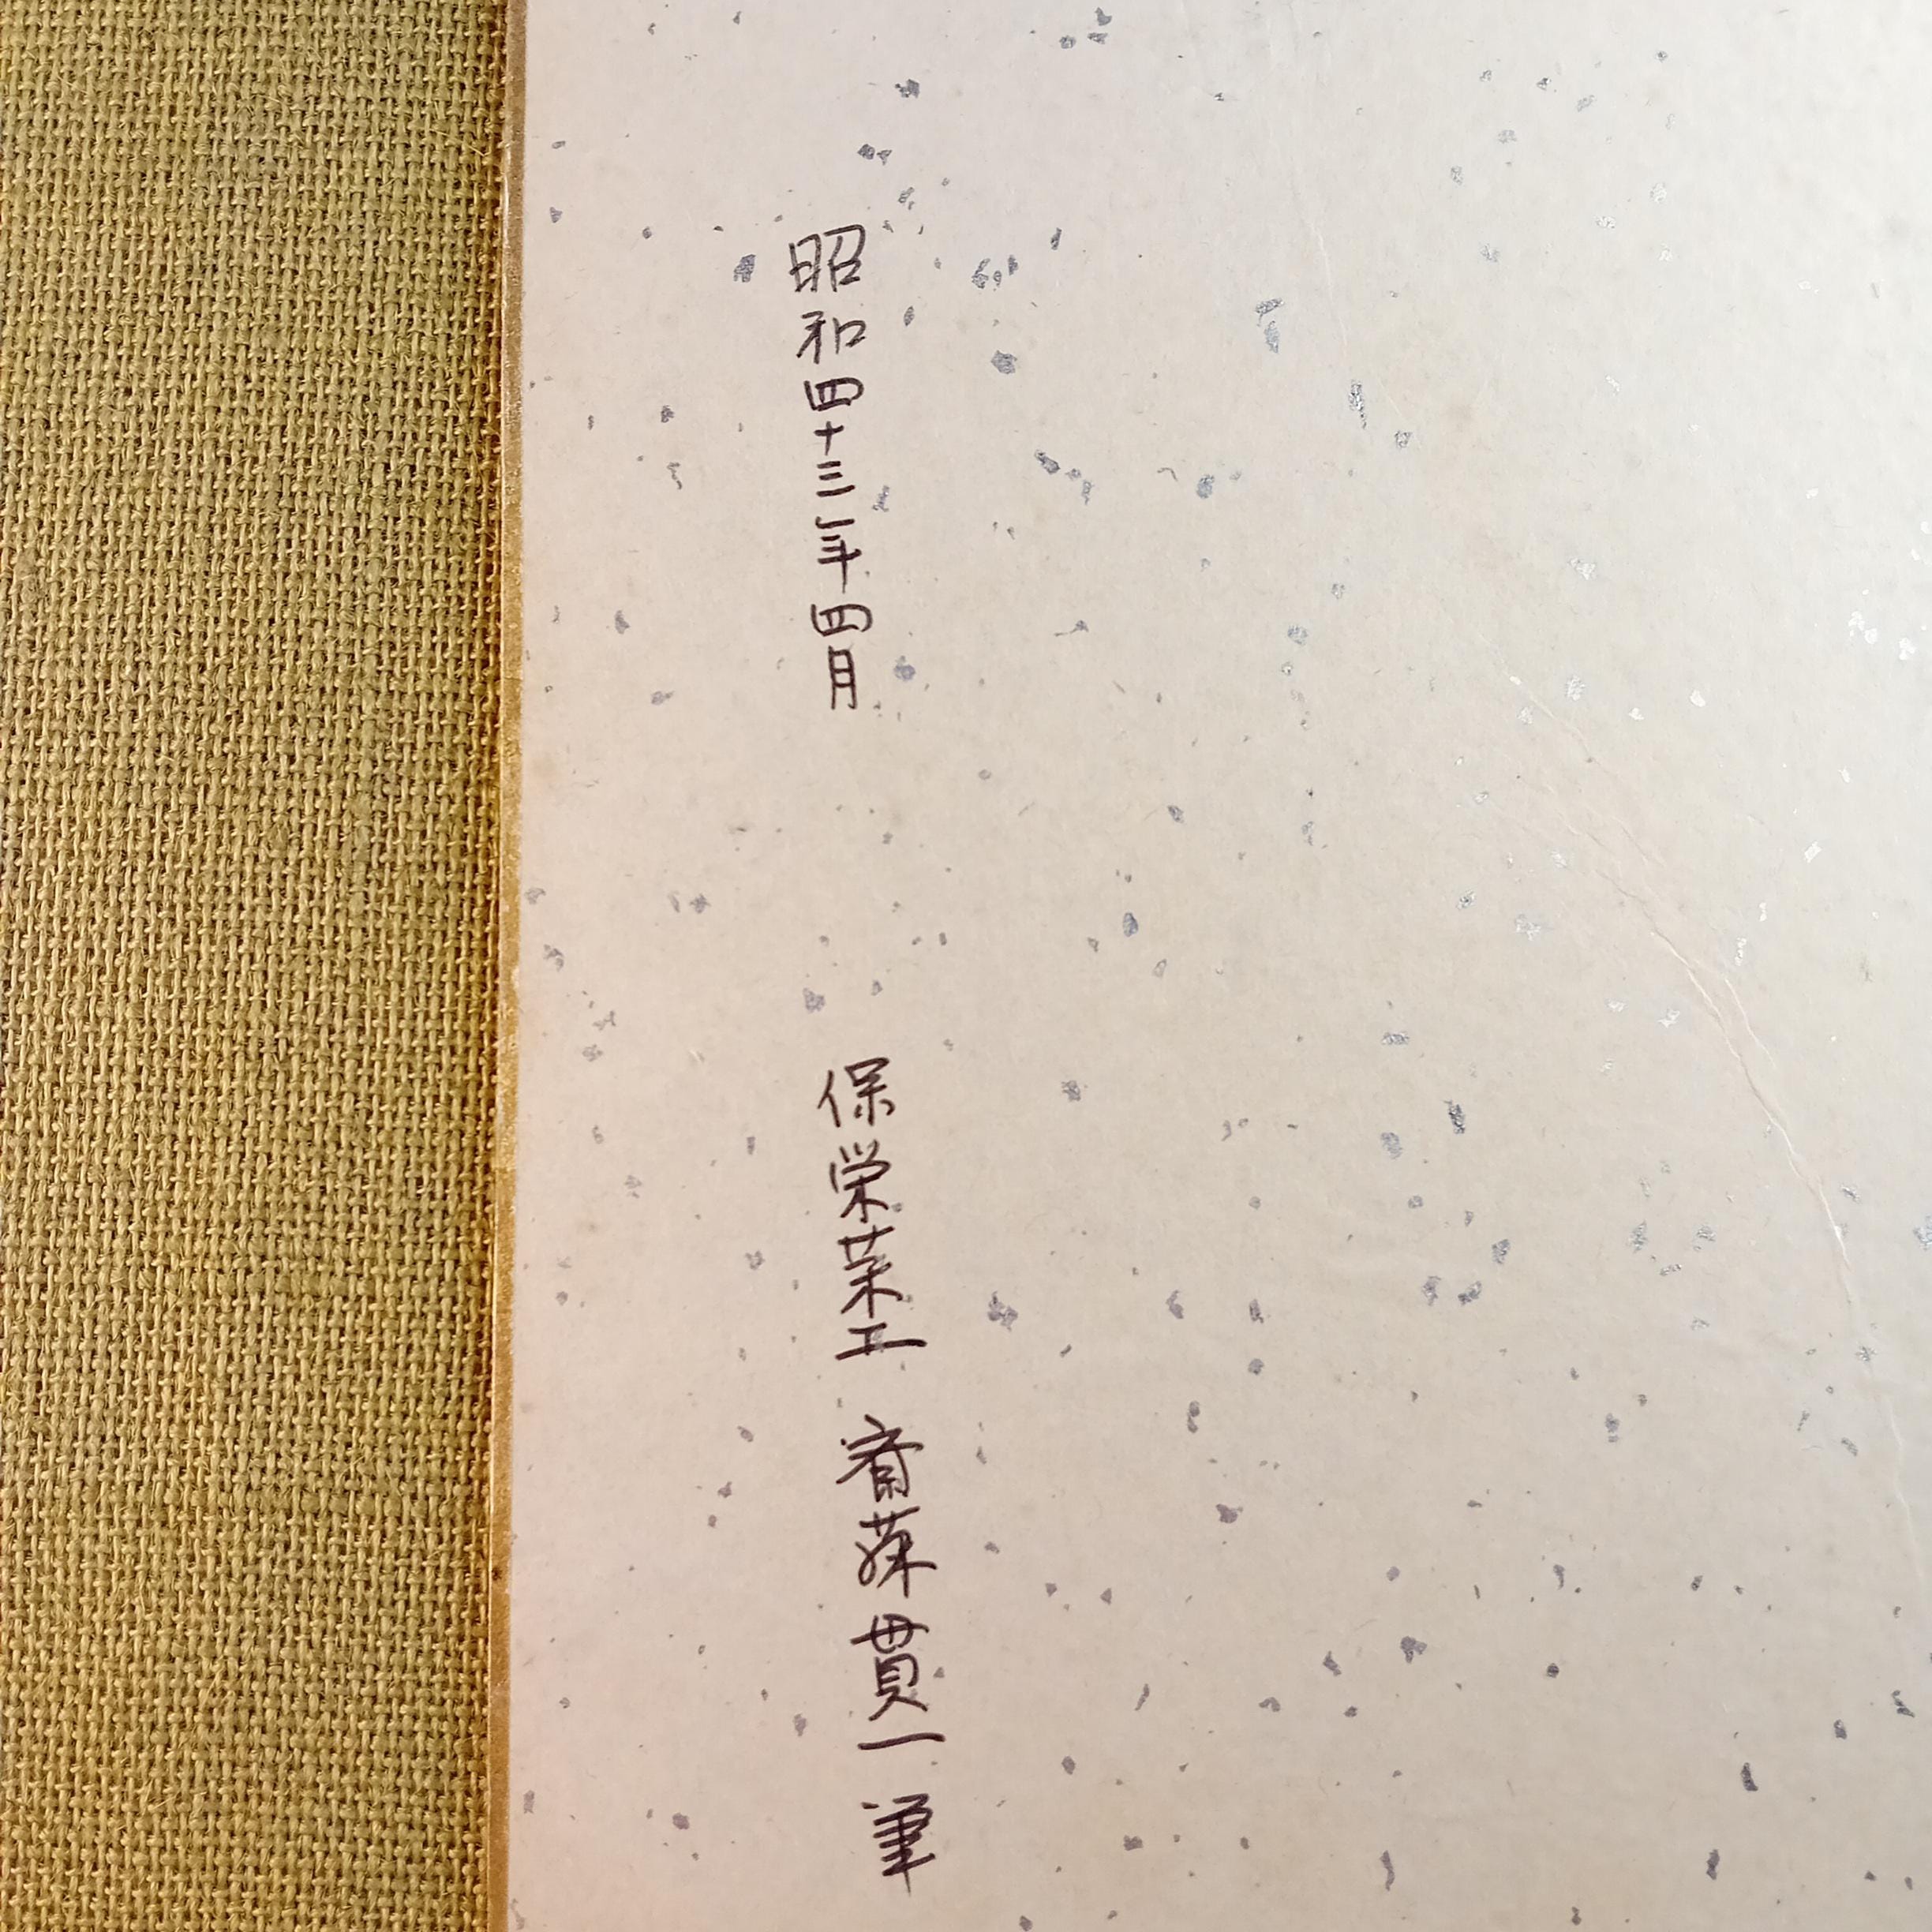 昭和四十三年四月 保栄 工 斎藤貫一筆